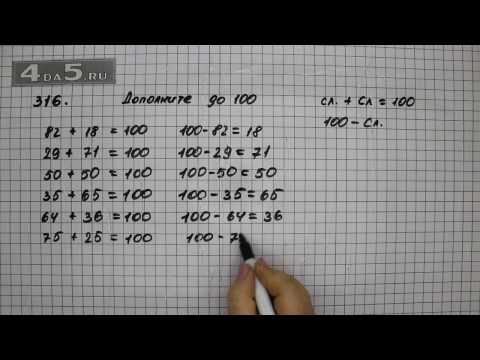 4DA5.RU
316. Дополните до 100
82 + 18 = 100
29 + 71 = 100
50 + 50 = 100
35 + 65 = 100
64 + 36 = 100
75 + 25 = 100
100 - 82 = 18
100 - 29 = 71
100 - 50 = 50
100 - 35 = 65
100 - 64 = 36
100 - 7
сл. + сл = 100
100 - сл.